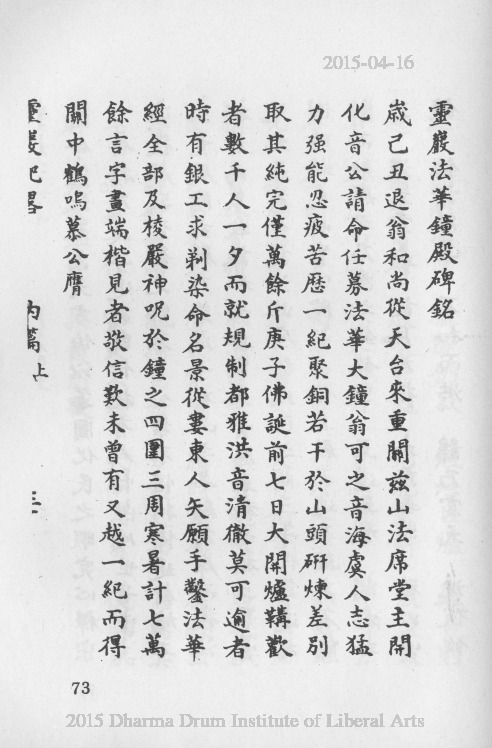 2015-04-16
靈巖法華鐘殿碑銘
歲己丑退翁和尚從天台來重關茲山法席堂主開
化音公請命任募法華大鐘翁可之音海虞人志猛
力强能忍疲苦歷一紀聚銅若干於山頭硏煉差別
取其純完僅萬餘斤庚子佛誕前七日大開爐鞲歡
者數千人一夕而就規制都雅洪音清徹莫可逾者
時有銀工求剃染命名景從婁東人矢願手鑿法華
經全部及棱嚴神呪於鐘之四圍三周寒暑計七萬
餘言字畫端楷見者敬信歎未曾有又越一紀而得
關中鶴鳴慕公膺
靈巖記畧 內篇上 三一
73
2015 Dharma Drum Institute of Liberal Arts